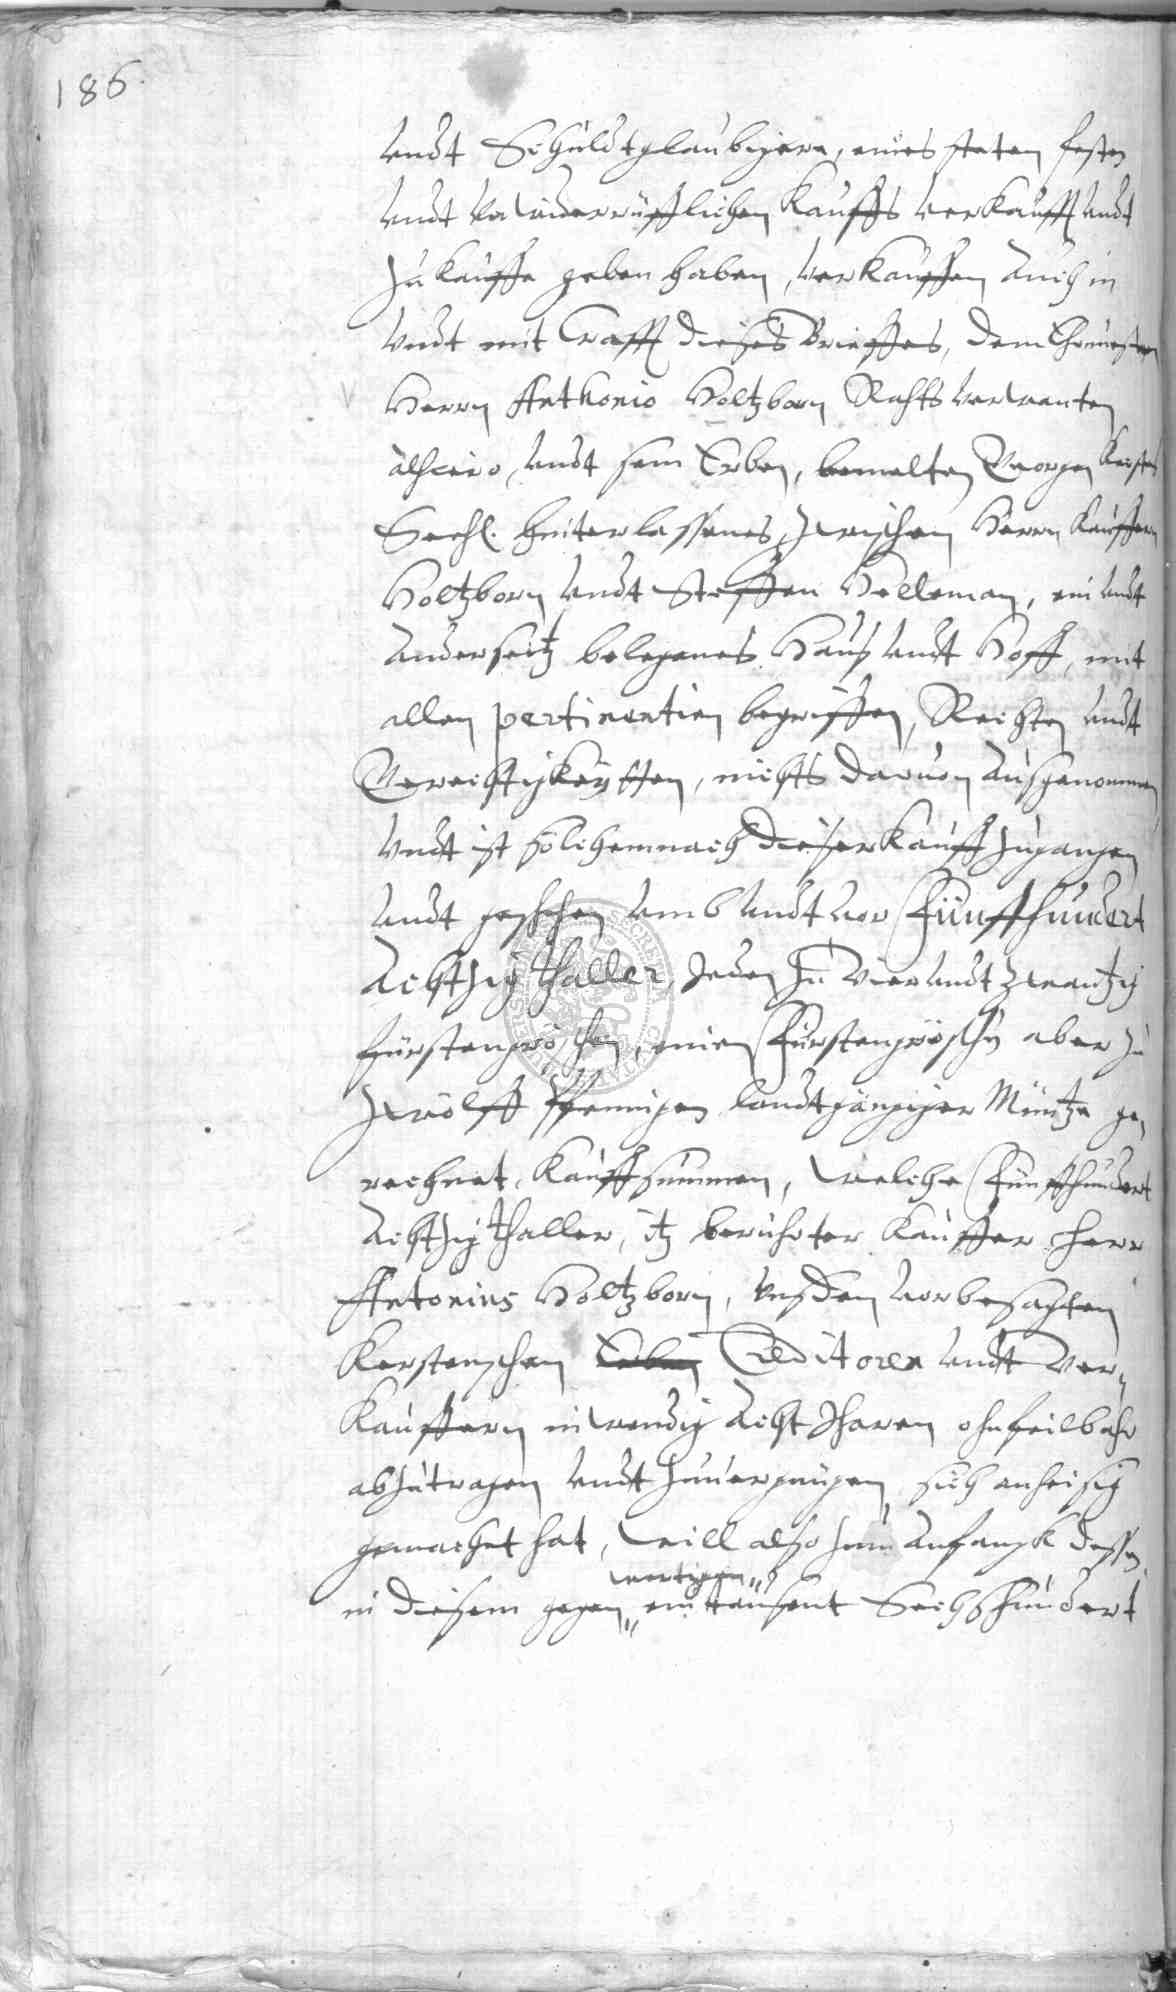 186.
undt Schuldtglaubigern, eines steten festen
undt unwiderrüfflichen Kauffs verkaufft undt
zu kauffe geben haben, verkauffen auch in
undt mit Crafft dieses Brieffes, dem Ehrnuesten
Herrn Anthonio Holtzborn Rahts verwanten
alhiero, undt sein Erben, bemelten Georgen Kersten
Seehl. hinterlassenes, zwischen Herrn Kauffern
Holtzborn undt Steffen Helleman, ein undt
anderseitz belegenes Haus undt Hoff, mit
allen pertinentien begriffen, Rechten undt
Gerechtigkeytten, nichts dauon ausgenommen
undt ist solchemnach dieser Kauff zugangen
undt geschehen umb undt vor Fünffhundert
Achtzig thaller, Jeden zu vier undt zwantzig
fürstengröschen, einen Fürstengröschen aber zu
zwölff Pfennigen landtgängiger Müntze ge,
rechnet, Kauffsummen, welche Fünffhundert
Achtzig thaller, itz berührter Kauffer Herr
Antonius Holtzborn, ... den vorbesagten
Kerstenschen Erben Creditoren undt Ver,
Kauffern inwendig Acht Jharen ohnfeilbahr
abzutragen undt zuuergnügen, sich anheisig
gemachet hat, will also zum Anfangk dessen
wertigen
in diesem gegen " ein tausent Sechshundert